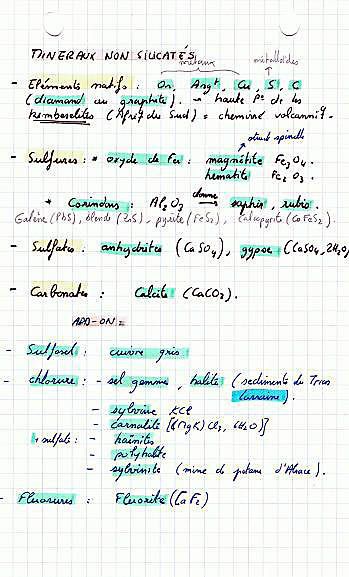 MINERAUX NON SILICATÉS
métaux métalloïdes
- Eléments natifs : Or, Argt, Cu, S, C
(diamant ou graphite). → haute P° de les
kimberelites (Afriq du Sud) = cheminé volcaniq.
struct spinelle
- Sulfures : * oxyde de Fer : magnétite Fe3O4.
hematite Fe2O3.
* Corindons : Al2O3 donne saphir, rubis.
Galène (PbS), blende (ZnS), pyrite (FeS2), calcopyrite (CoFeS2).
- Sulfates : anhydrites (CaSO4), gypse (CaSO4, 2H2O)
- Carbonates : Calcite (CaCO3).
ADD-ON =
- Sulfosel : cuivre gris
- chlorure : - sel gemme, halite (sediments du Trias
Lorraine).
- sylvine KCl
- carnalite [(MgK)Cl3, 6H2O)]
+ sulfate : - kaïnites
- polyhalite
- sylvinite (mine de potasse d'Alsace).
- Fluorures : Fluorite (CaF2)